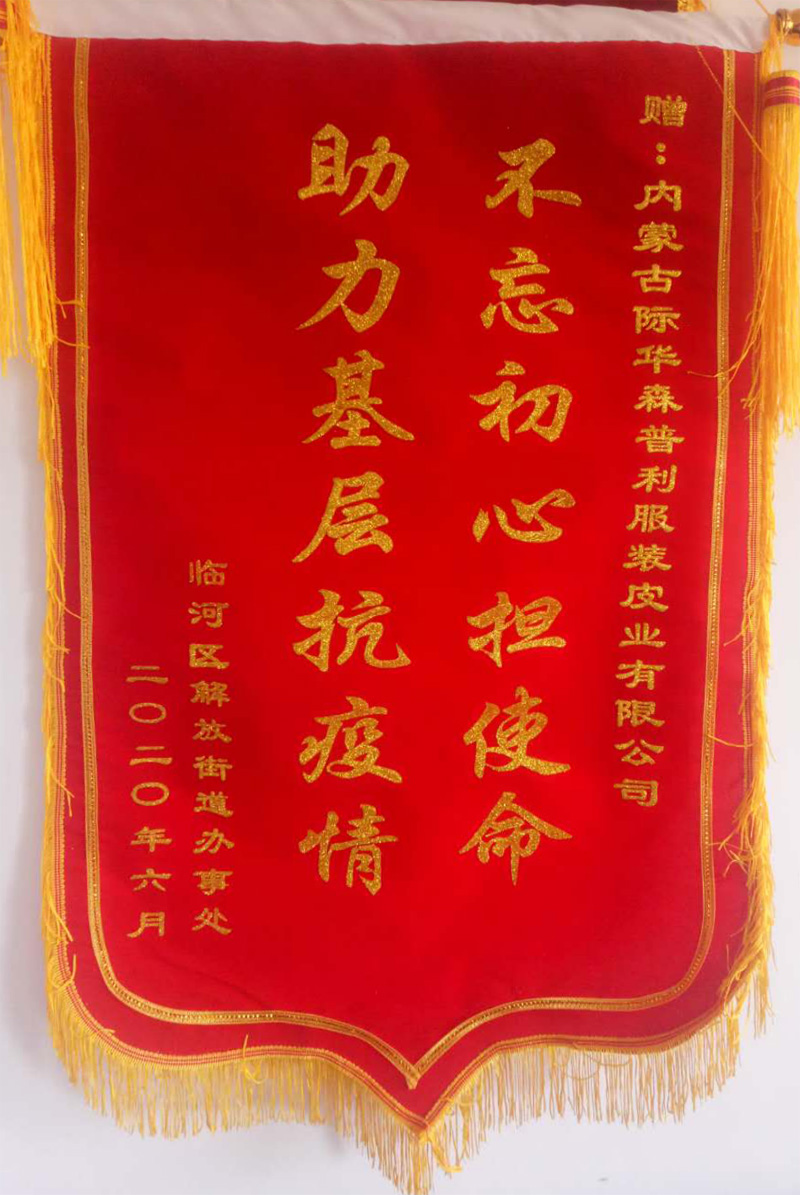 赠：内蒙古际华森普利服装皮业有限公司
不忘初心担使命
助力基层抗疫情
临河区解放街道办事处
二〇二〇年六月